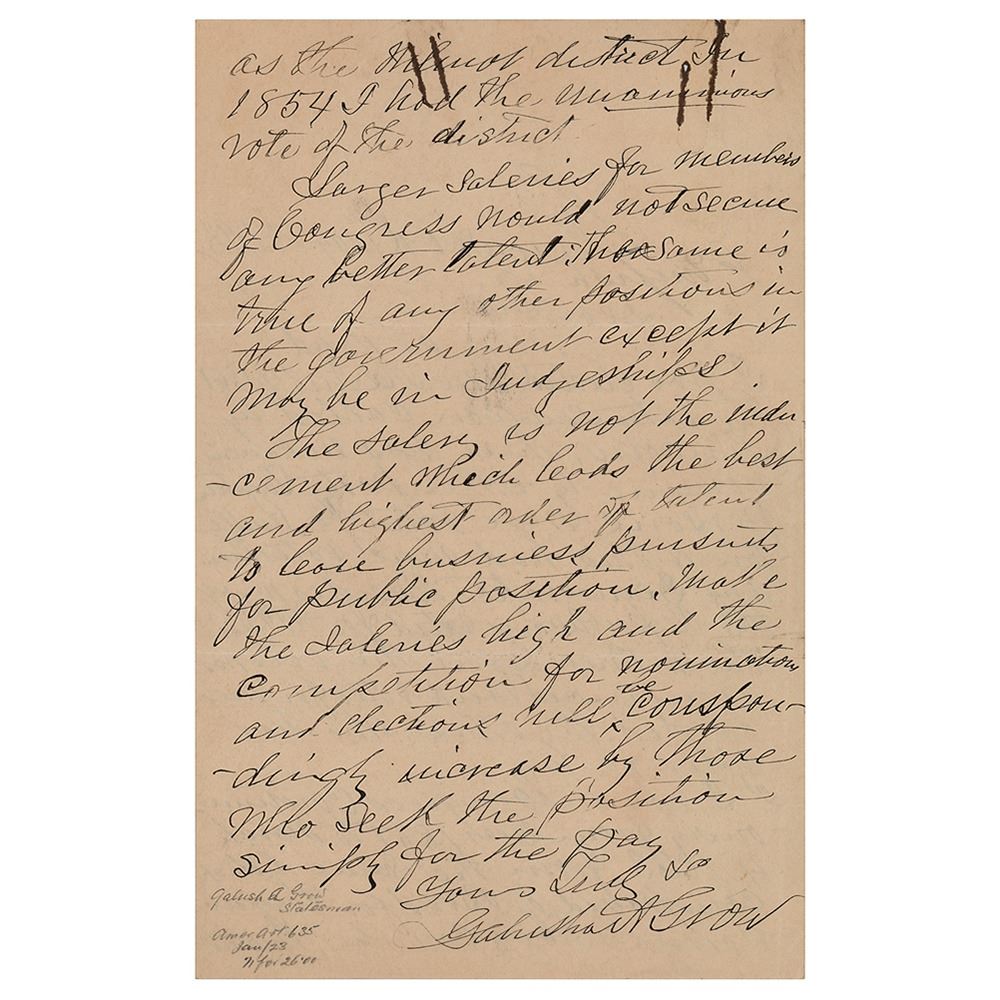 as the Wilmot district. In
1854 I had the unanimious
vote of the district
Larger saleries for members
of Congress would not secure
any better talent. The same is
true of any other positions in
the government except it
may be in Judgeships
The salery is not the indu-
-cement which leads the best
and highest order of talent
to leave business pursuits
for public position. Make
the saleries high and the
competition for nominations
and elections will be correspon-
-dingly increase by those
who seek the position
simply for the pay
Yours Truly &c
Galusha A Grow
Galush A Grow
Statesman
Amer Art. 635
Jan/23
71 for 26.00